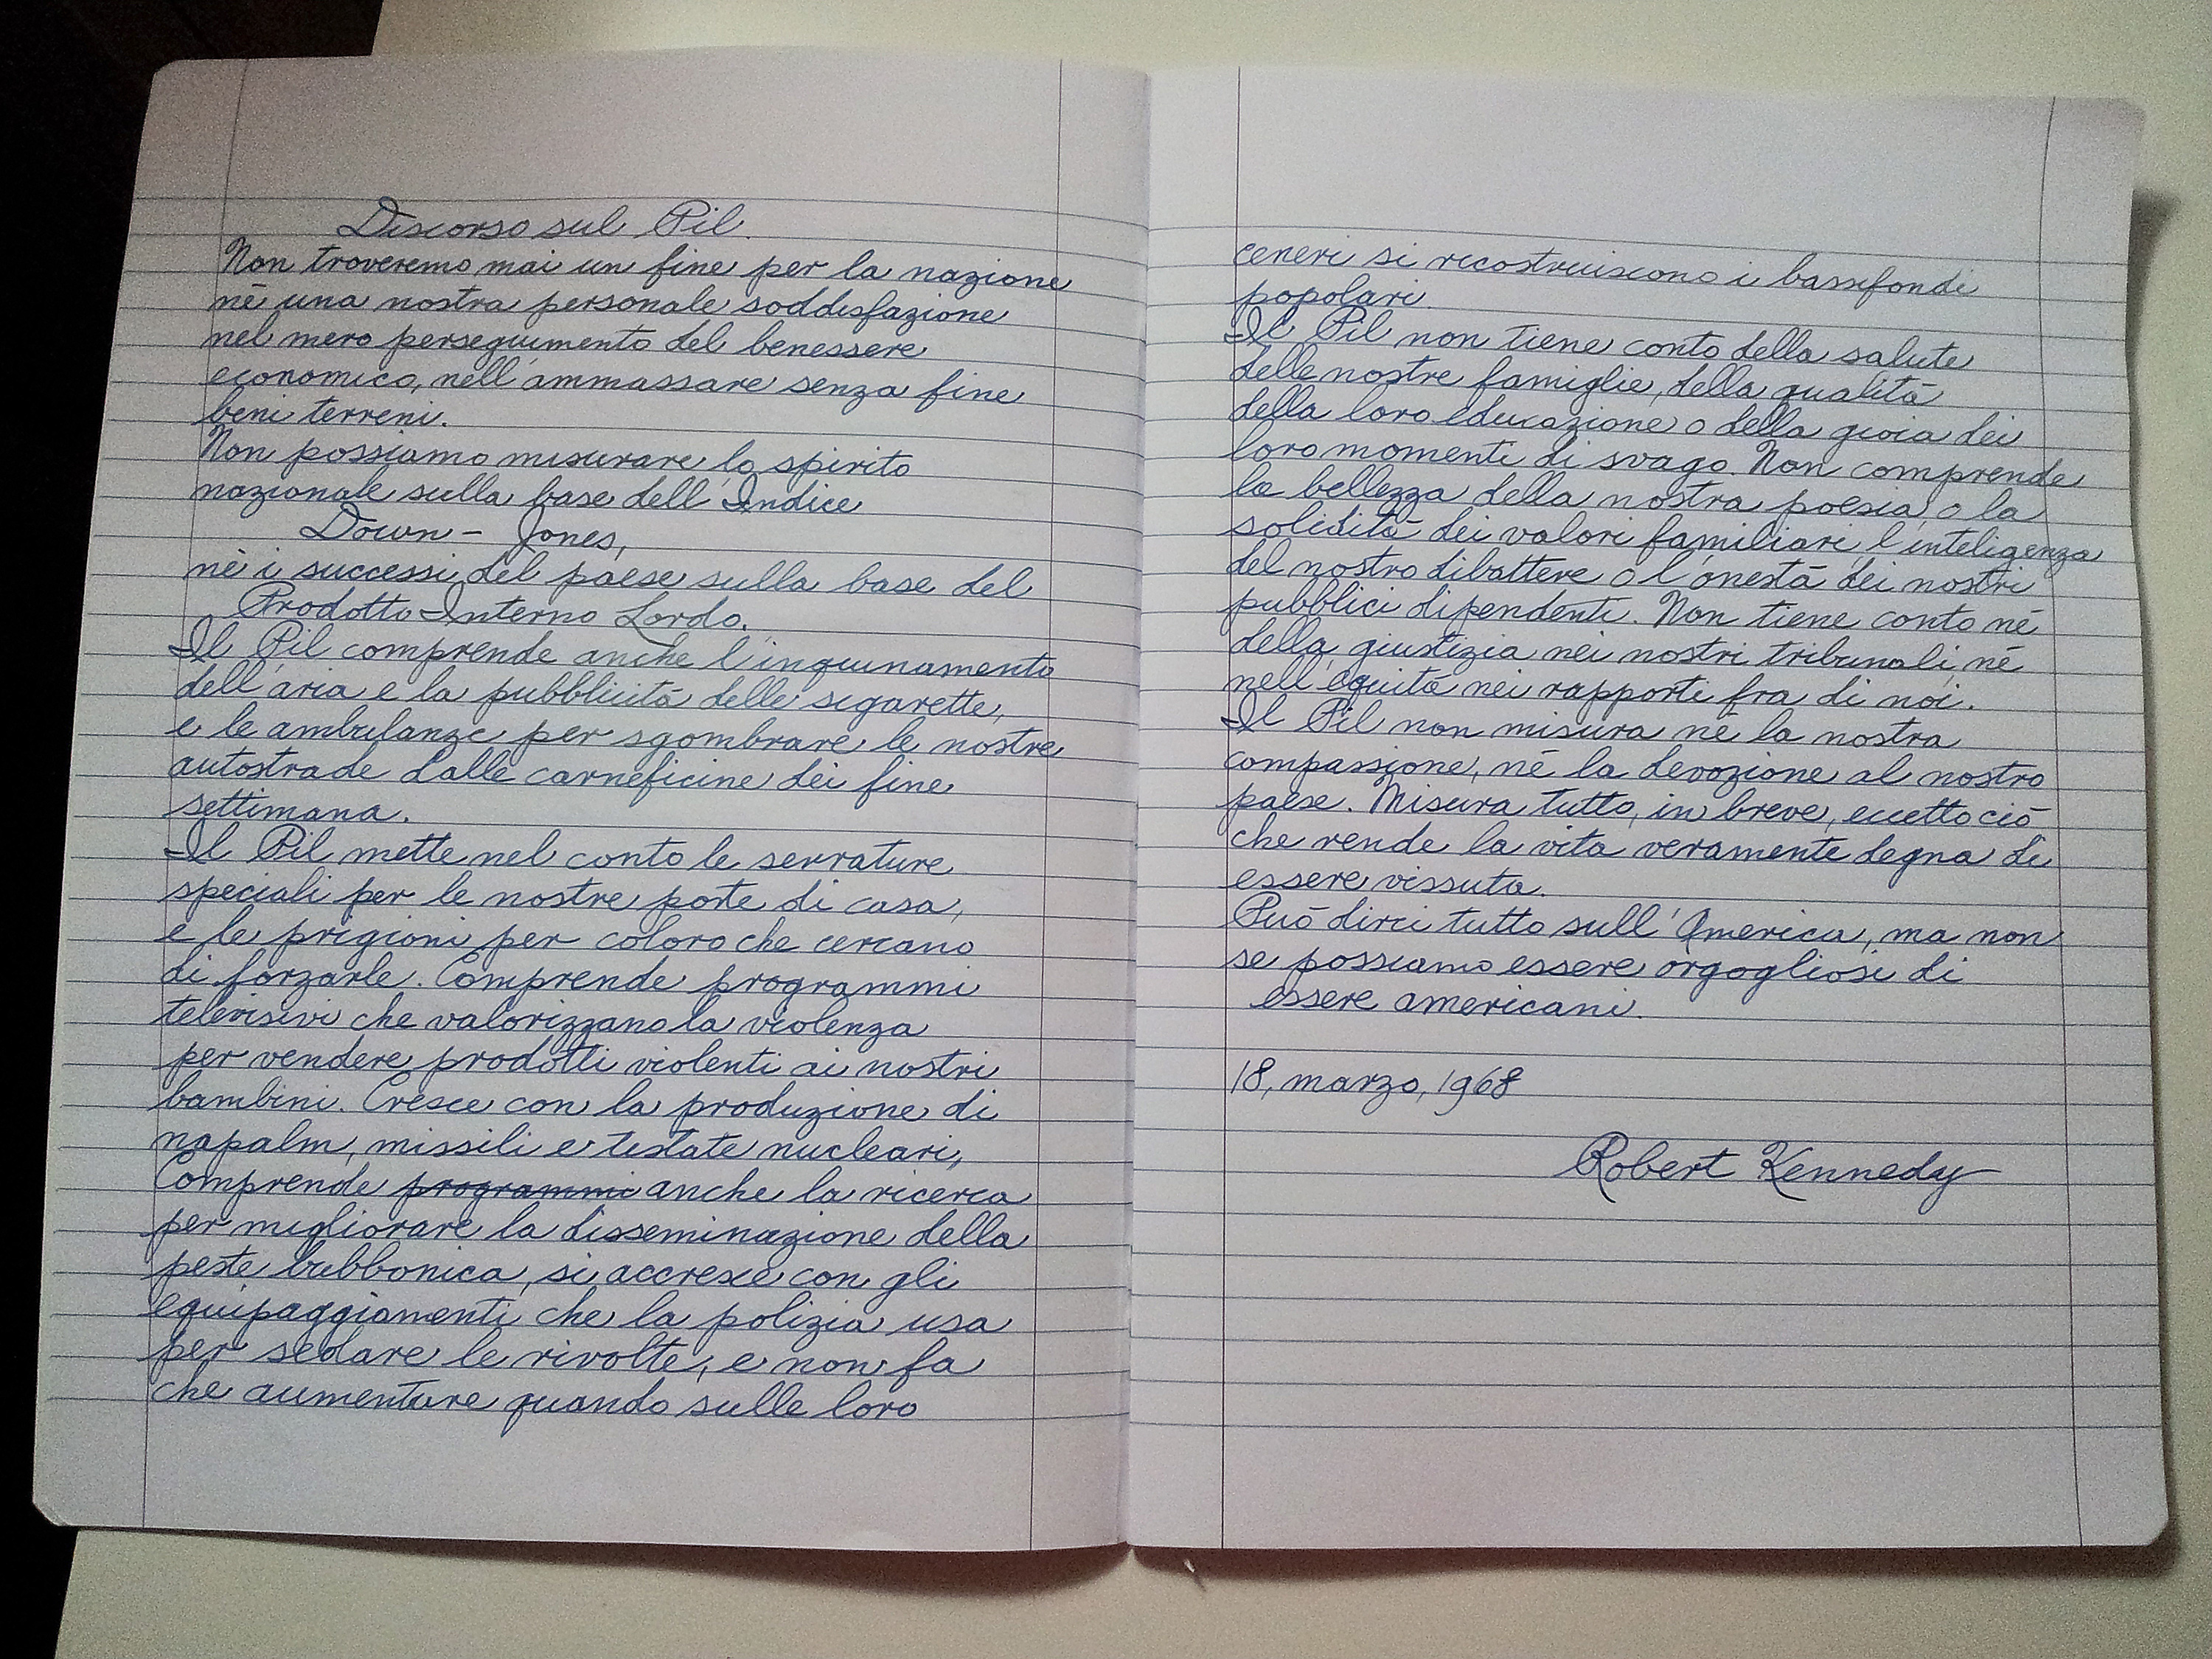 Discorso sul Pil.
Non troveremo mai un fine per la nazione
nè una nostra personale soddisfazione
nel mero perseguimento del benessere
economico, nell'ammassare senza fine
beni terreni.
Non possiamo misurare lo spirito
nazionale sulla base dell'Indice
Down - Jones,
nè i successi del paese sulla base del
Prodotto Interno Lordo.
Il Pil comprende anche l'inquinamento
dell'aria e la pubblicità delle sigarette,
e le ambulanze per sgombrare le nostre
autostrade dalle carneficine dei fine
settimana.
Il Pil mette nel conto le serrature
speciali per le nostre porte di casa,
e le prigioni per coloro che cercano
di forzarle. Comprende programmi
televisivi che valorizzano la violenza
per vendere prodotti violenti ai nostri
bambini. Cresce con la produzione di
napalm, missili e testate nucleari,
Comprende programmi anche la ricerca
per migliorare la disseminazione della
peste bubbonica, si accresce con gli
equipaggiamenti che la polizia usa
per sedare le rivolte, e non fa
che aumentare quando sulle loro
ceneri si ricostruiscono i bassifondi
popolari.
Il Pil non tiene conto della salute
delle nostre famiglie, della qualità
della loro educazione o della gioia dei
loro momenti di svago. Non comprende
la bellezza della nostra poesia o la
solidità dei valori familiari, l'inteligenza
del nostro dibattere o l'onestà dei nostri
pubblici dipendenti. Non tiene conto né
della giustizia nei nostri tribunali, né
nell'equità nei rapporti fra di noi.
Il Pil non misura né la nostra
compassione, né la devozione al nostro
paese. Misura tutto, in breve, eccetto ciò
che rende la vita veramente degna di
essere vissuta.
Può dirci tutto sull'America, ma non
se possiamo essere orgogliosi di
essere americani.
18, marzo, 1968
Robert Kennedy